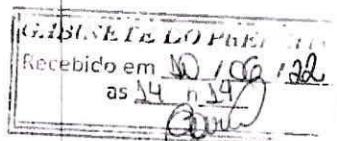 GABINETE DO PREFEITO
Recebido em 10 / 06 / 22
as 14 h 14